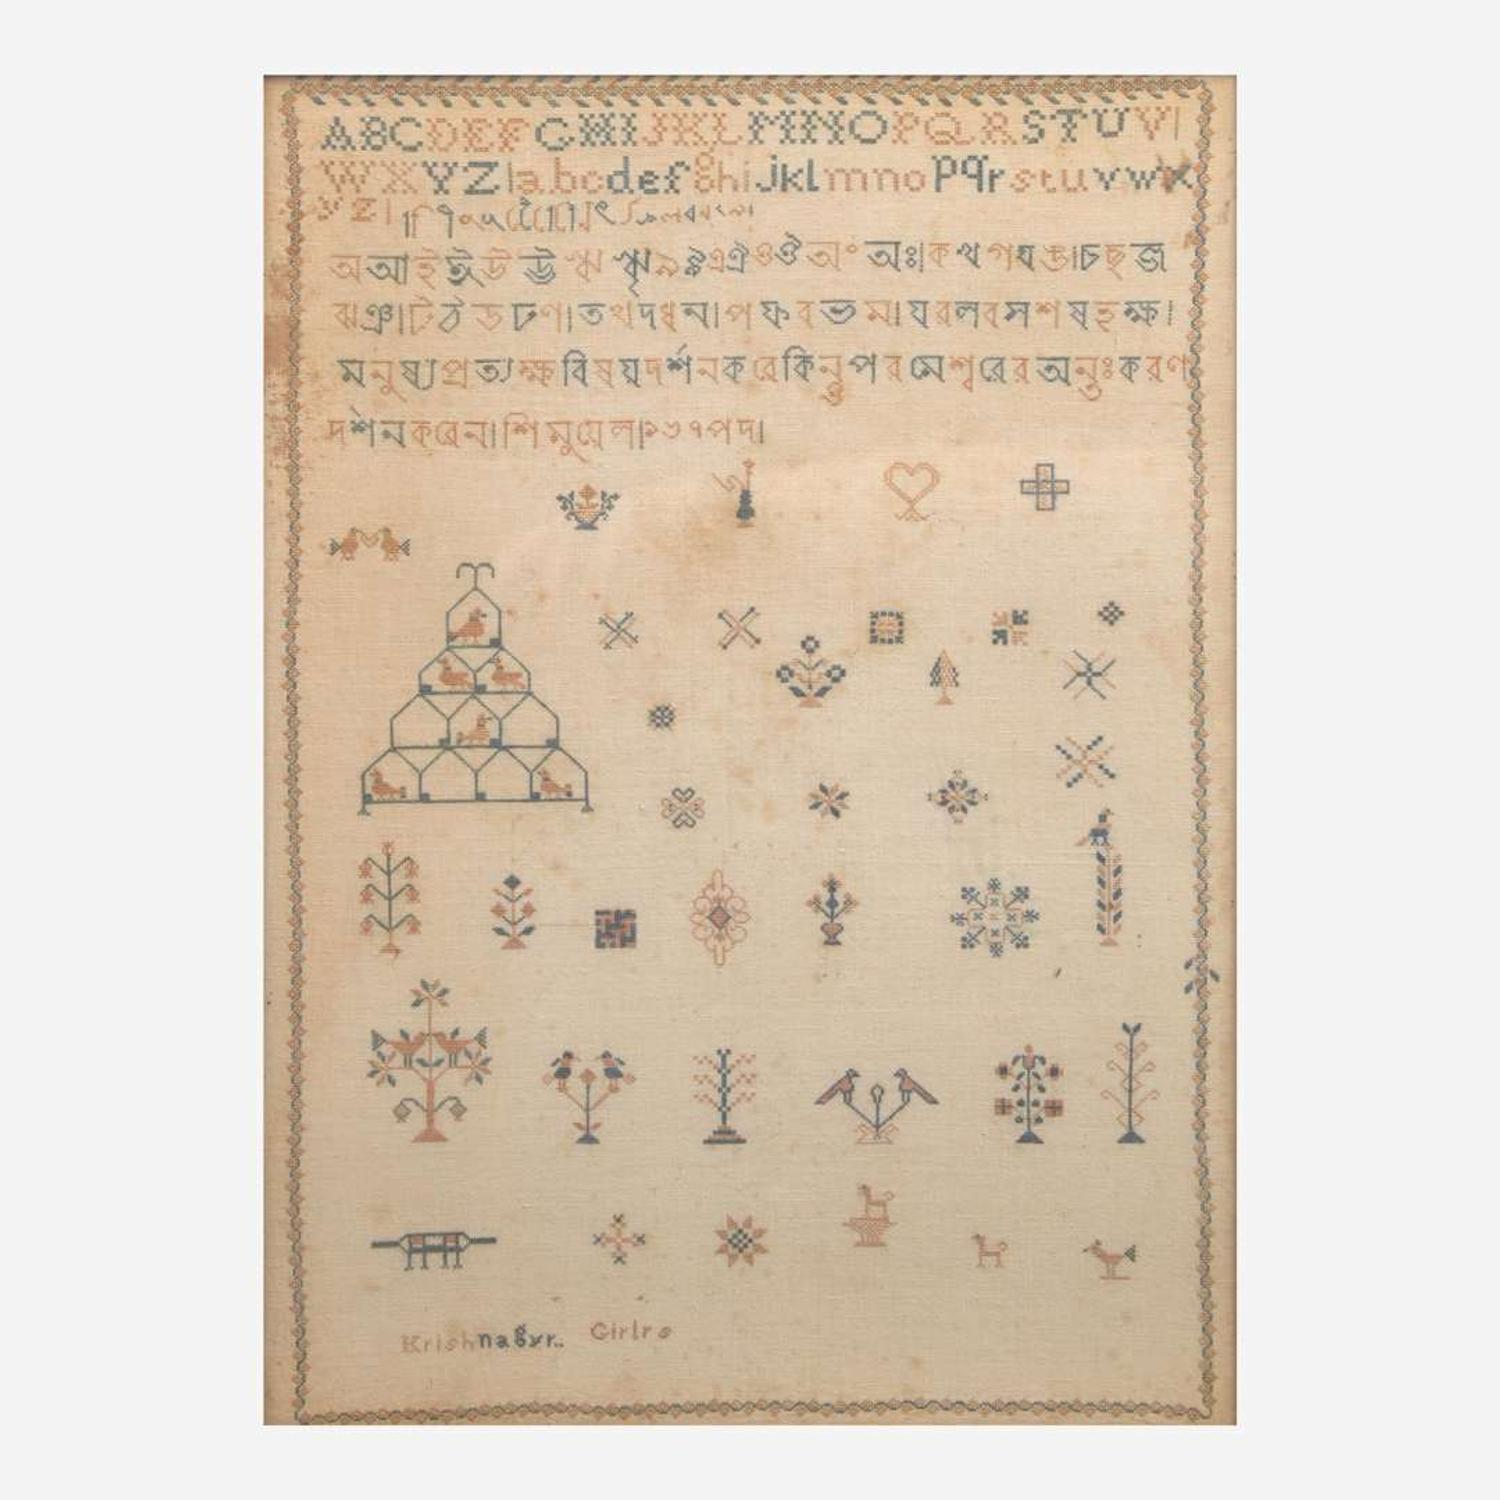 ABCDEFGHIJKLMNOPQRSTUV|
WXYZ|abcdefghijklmnopqrstuvwx
yz|
অআইঈউঊঋৠঌৡএঐওঔঅংঅঃ|কখগঘঙ|চছজ
ঝঞ|টঠডঢণ|তথদধন|পফবভম|যরলবসশষহক্ষ|
মনুষ্যপ্রত্যক্ষবিষয়দর্শনকরেকিন্তুপরমেশ্বরেরঅন্তঃকরণ
দর্শনকরেন|শিমুয়েল|১৬৭পদ|
Krishnagur.. Girlrs